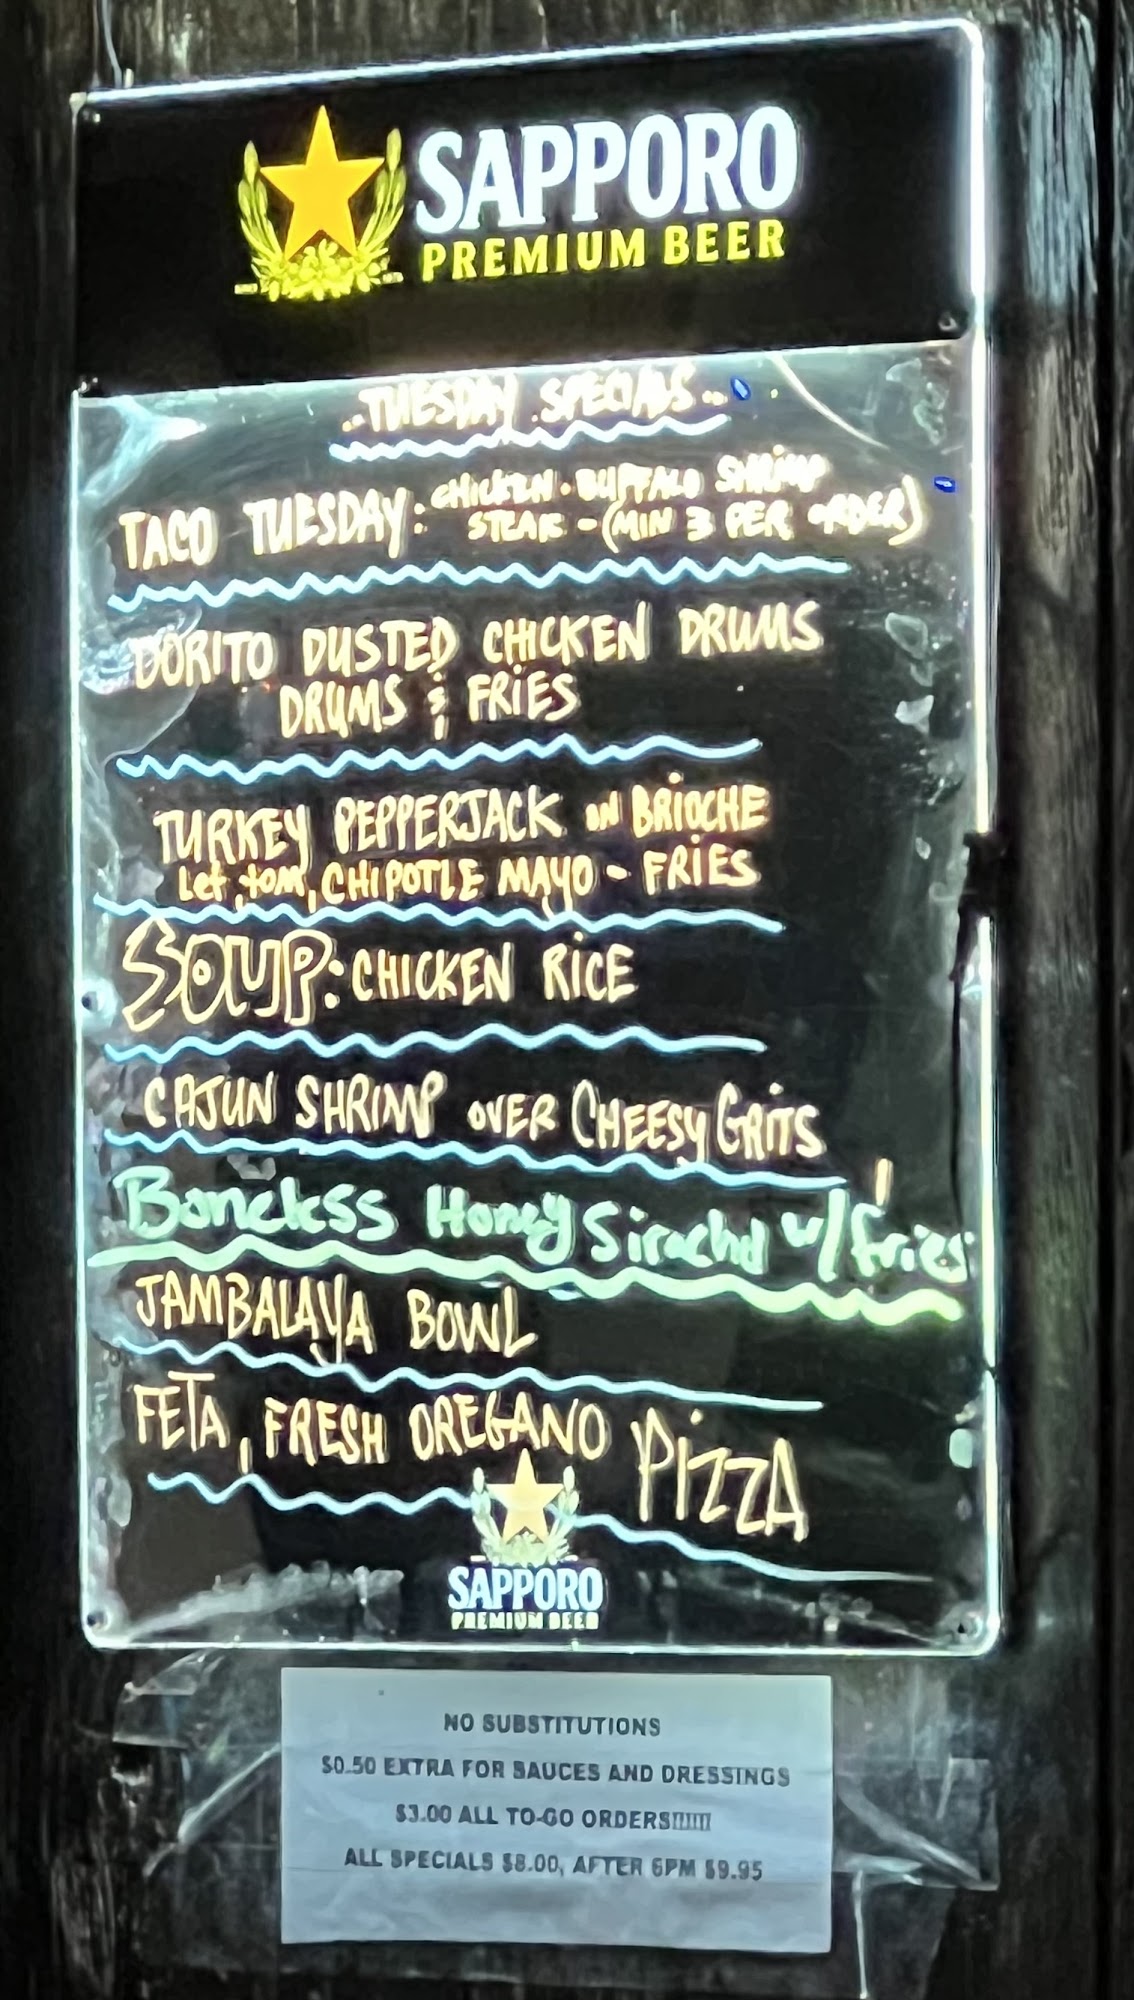 SAPPORO
PREMIUM BEER
..TUESDAY SPECIALS..
TACO TUESDAY: CHICKEN · BUFFALO SHRIMP
STEAK - (MIN 3 PER ORDER)
DORITO DUSTED CHICKEN DRUMS
DRUMS & FRIES
TURKEY PEPPERJACK ON BRIOCHE
Let, tom, CHIPOTLE MAYO - FRIES
SOUP: CHICKEN RICE
CAJUN SHRIMP OVER CHEESY GRITS
Boneless Honey Siracha w/ fries
JAMBALAYA BOWL
FETA, FRESH OREGANO PIZZA
SAPPORO
PREMIUM BEER
NO SUBSTITUTIONS
$0.50 EXTRA FOR SAUCES AND DRESSINGS
$3.00 ALL TO-GO ORDERS!!!!!!!
ALL SPECIALS $8.00, AFTER 6PM $9.95